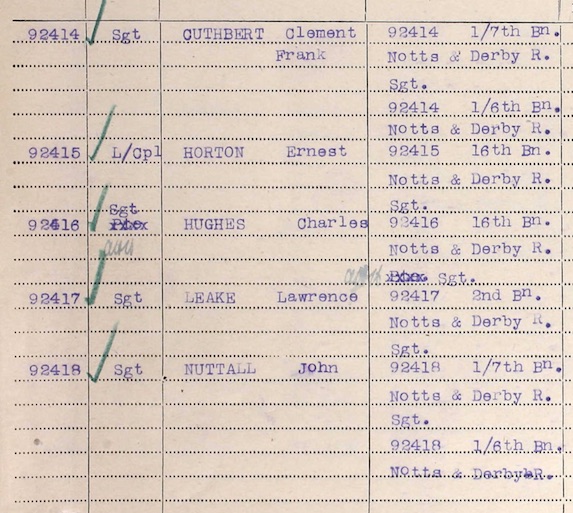 92414 Sgt CUTHBERT Clement 92414 1/7th Bn.
Frank Notts & Derby R.
Sgt.
92414 1/6th Bn.
Notts & Derby R.
92415 L/Cpl HORTON Ernest 92415 16th Bn.
Notts & Derby R.
Sgt Sgt.
92416 HUGHES Charles 92416 16th Bn.
Notts & Derby R.
Sgt.
92417 Sgt LEAKE Lawrence 92417 2nd Bn.
Notts & Derby R.
Sgt.
92418 Sgt NUTTALL John 92418 1/7th Bn.
Notts & Derby R.
Sgt.
92418 1/6th Bn.
Notts & Derby R.